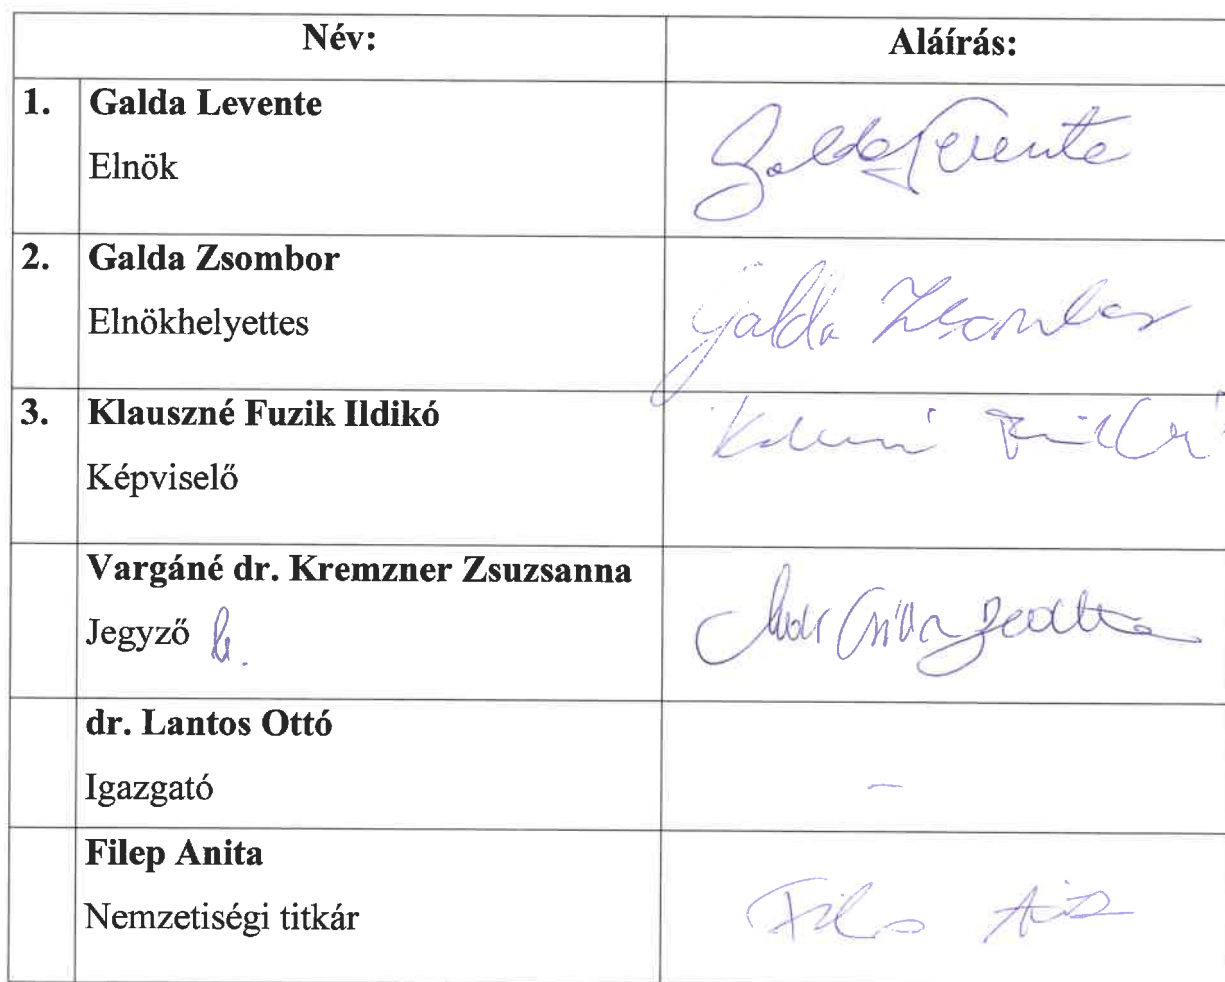 Név: Aláírás:
1. Galda Levente
Elnök
Galda Levente
2. Galda Zsombor
Elnökhelyettes
Galda Zsombor
3. Klauszné Fuzik Ildikó
Képviselő
Vargáné dr. Kremzner Zsuzsanna
Jegyző
dr. Lantos Ottó
Igazgató
–
Filep Anita
Nemzetiségi titkár